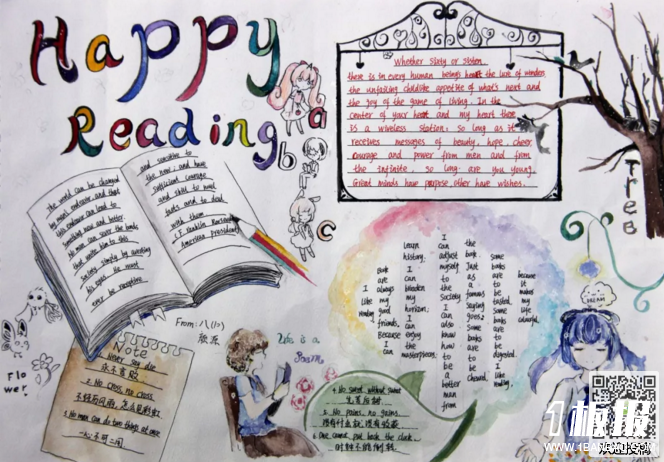 Happy
Reading
a
b
c
Whether sixty or sixteen.
there is in every human being's heart the lure of wonders
the unfailing childlike appetite of what's next and
the joy of the game of living. In the
center of your heart and my heart there
is a wireless station; so long as it
receives messages of beauty, hope, cheer
courage and power from men and from
the infinite, so long are you young.
Great minds have purpose other have wishes.
Tree
The world can be changed
by man's endeavor, and that
this endeavor can lead to
something new and better.
No man can sever the bonds
that unite him to this
society simply by averting
his eyes. He must
ever be receptive
and sensitive to
the new; and have
sufficient courage
and skill to
facts and to deal
with them
American president
From: 八(1)
Life is a
Poem
Flower
Note
Never say die
永不言败
2. No Cross, no crow
不经历风雨,怎么见彩虹
3. No man can do two things at once
一心不可二用
4. No sweet without sweat
先苦后甜
5. No pains, no gains.
没有付出就没有收获
6. One cannot put back the clock.
时钟不能倒转
Book are always like my good friends. Because I can
learn history, I can broaden my horizon; I can enjoy the masterpieces,
I can adjust myself to the society I can also know how to be a better man from
the book. Just as a famous saying goes: some books are to be chewed,
some books are to be tasted, some books are to be digested. I like reading,
because it makes my life colourful.
DREAM
1板报
WWW.1BANBAO.COM